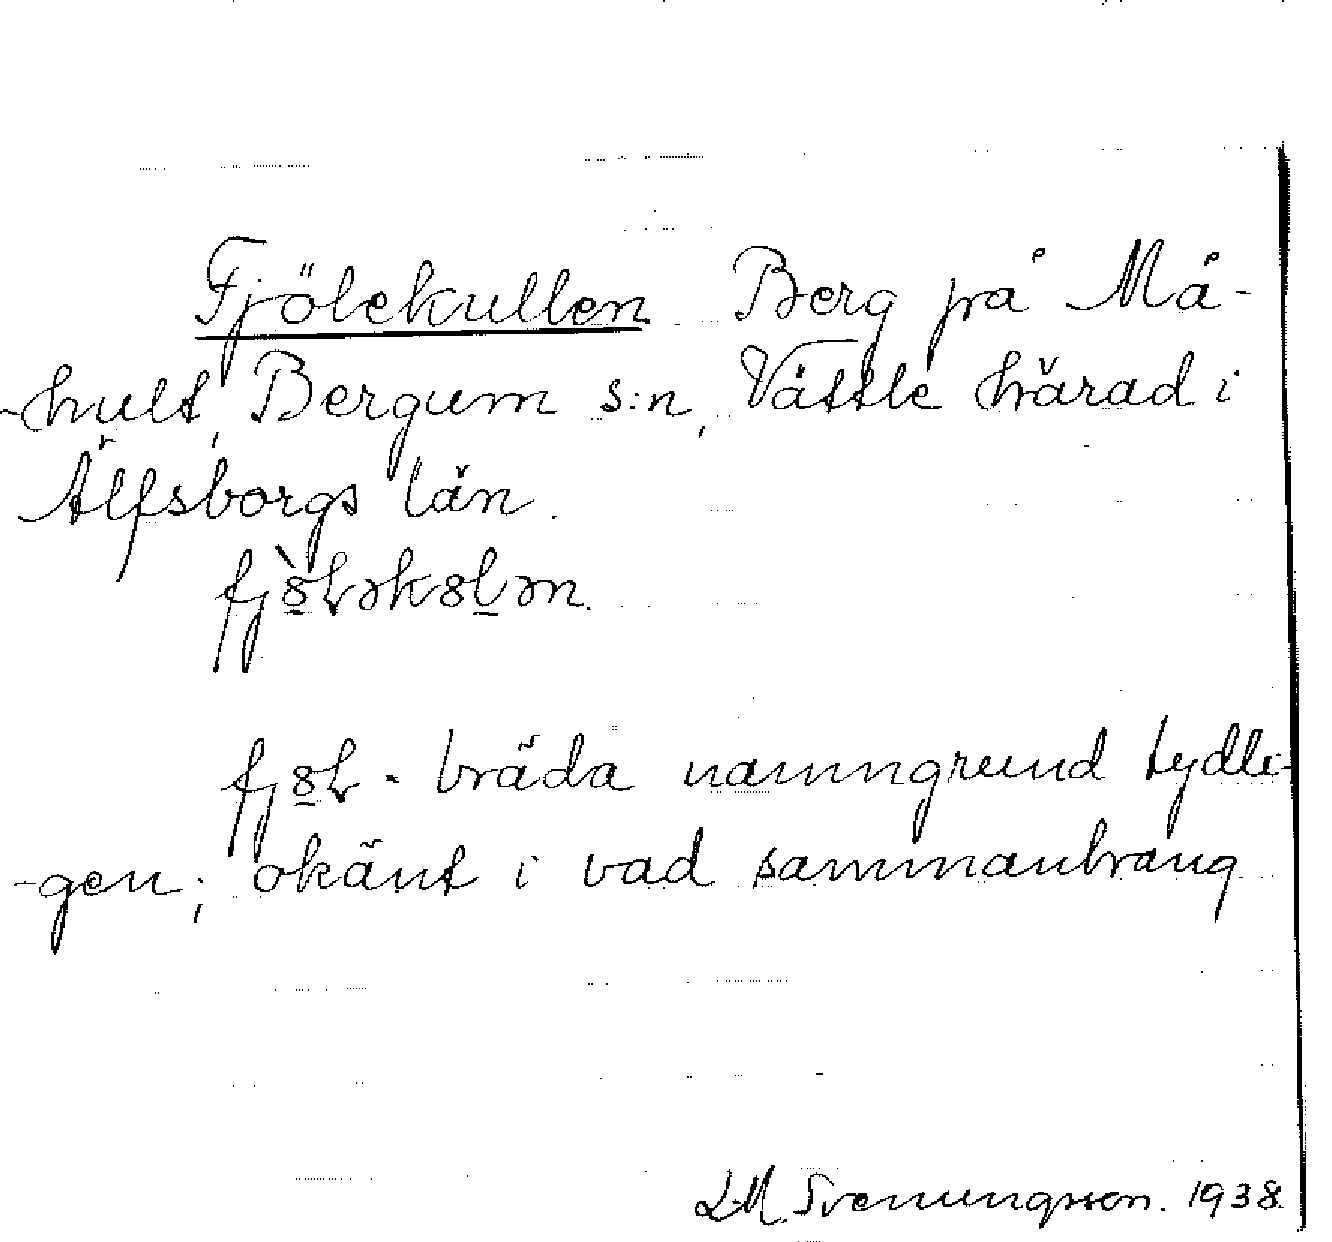 Fjölekullen Berg på Må-
-hult, Bergum s:n, Vättle härad i
Älfsborgs län.
fjȣ̱̀ɫəkȣḻən.
fjȣ̱ɫ - bräda namngrund tydli-
-gen; okänt i vad sammanhang
LM. Svenungsson. 1938.